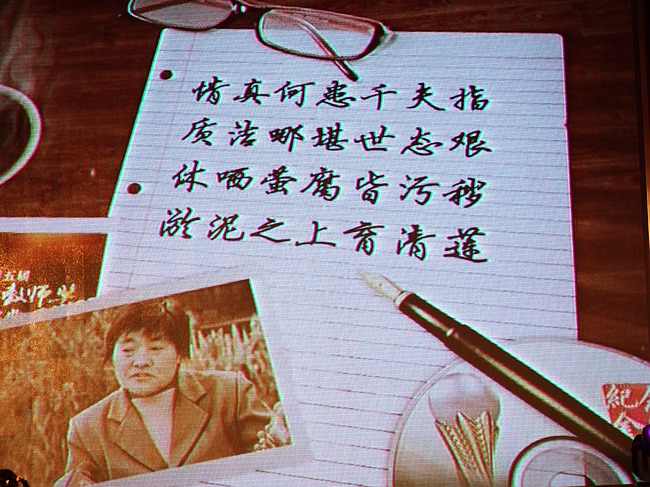 情真何患千夫指
质洁哪堪世态艰
休哂萤腐皆污秽
淤泥之上育清莲
五届
教师奖
纪念